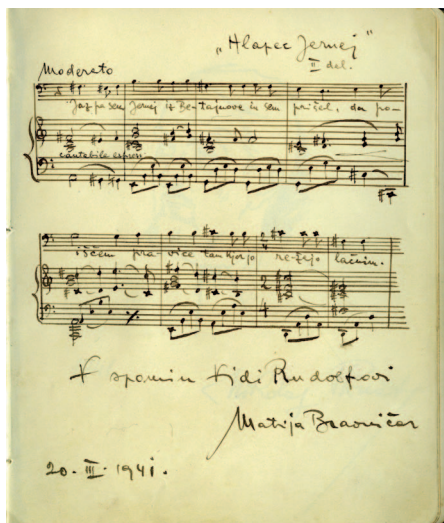 „Hlapec Jernej"
II del.
Moderato
Jaz pa sem Jernej iz Be- tajnove in sem prišel, da po-
cantabile espress.
iščem pra- vice tam kjer jo re- žejo lačnim.
V spomin Vidi Rudolfovi
Matija Bravničar
20. III. 1941.